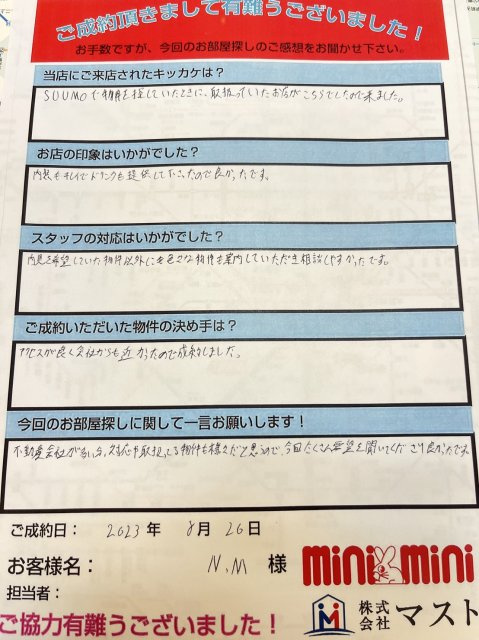 ご成約頂きまして有難うございました！
お手数ですが、今回のお部屋探しのご感想をお聞かせ下さい。
当店にご来店されたキッカケは？
SUUMOで物件を探していたときに、取扱っていたお店がこちらでしたので来ました。
お店の印象はいかがでした？
内装もキレイでドリンクも提供して下さったので良かったです。
スタッフの対応はいかがでした？
内見を希望していた物件以外にも色々な物件も案内していただき相談しやすかったです。
ご成約いただいた物件の決め手は？
アクセスが良く会社からも近かったので成約しました。
今回のお部屋探しに関して一言お願いします！
不動産会社が多い分、対応や取扱ってる物件も様々だと思うので、今回たくさん要望を聞いてくださり良かったです。
ご成約日： 2023 年 8 月 26 日
お客様名： N.M 様
mini mini
担当者：
株式会社 マスト
ご協力有難うございました！